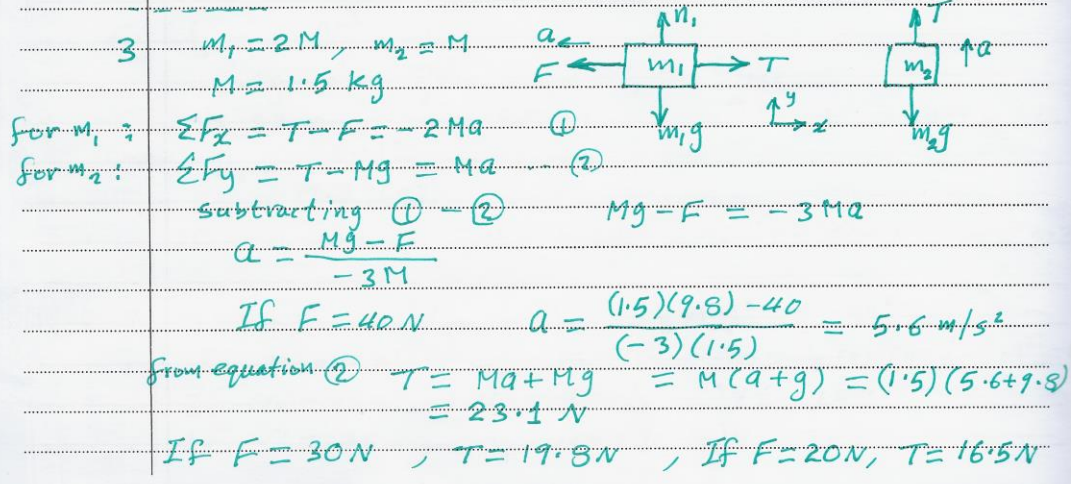 3 m₁ = 2M, m₂ = M
M = 1.5 kg
a F n₁ m₁ T m₁g y x
T a m₂ m₂g
for m₁ : ΣFx = T - F = - 2Ma ①
for m₂ : ΣFy = T - Mg = Ma --- ②
subtracting ① - ② Mg - F = - 3Ma
a = (Mg - F)/(-3M)
If F = 40 N a = ((1.5)(9.8) - 40)/((-3)(1.5)) = 5.6 m/s²
from equation ② T = Ma + Mg = M(a+g) = (1.5)(5.6+9.8)
= 23.1 N
If F = 30N , T = 19.8N , If F = 20N, T = 16.5N